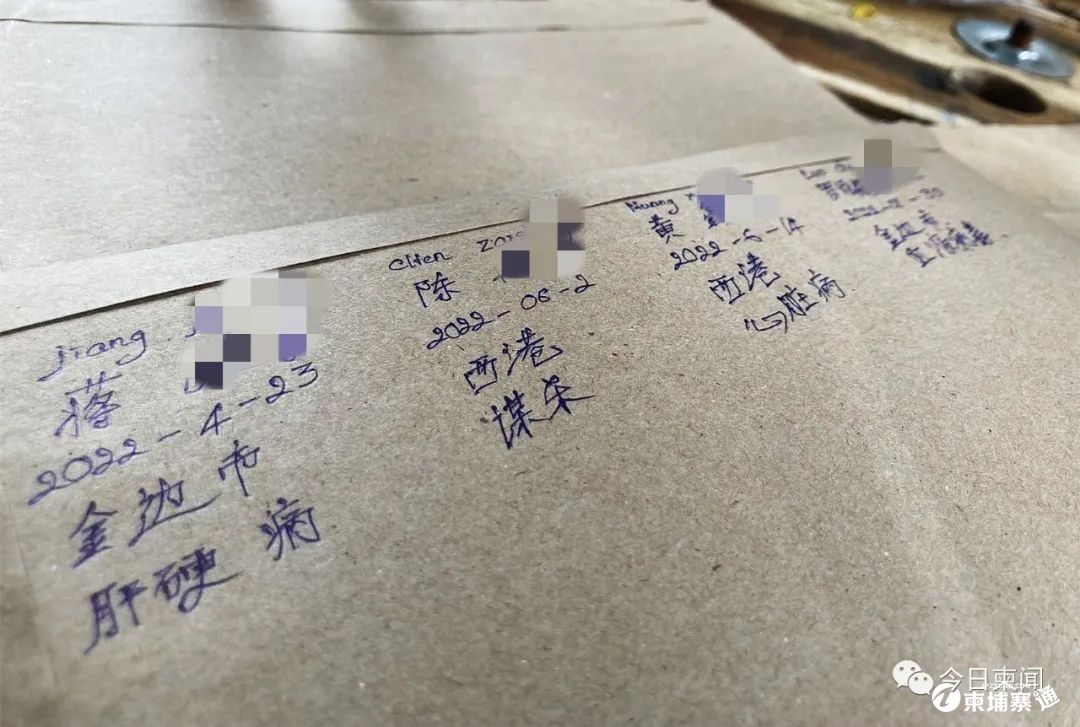 jiang
蒋
2022-4-23
金边市
肝硬病
chen
陈
2022-06-2
西港
谋杀
Huang
黄
2022-6-14
西港
心脏病
金边市
今日柬闻
柬埔寨通